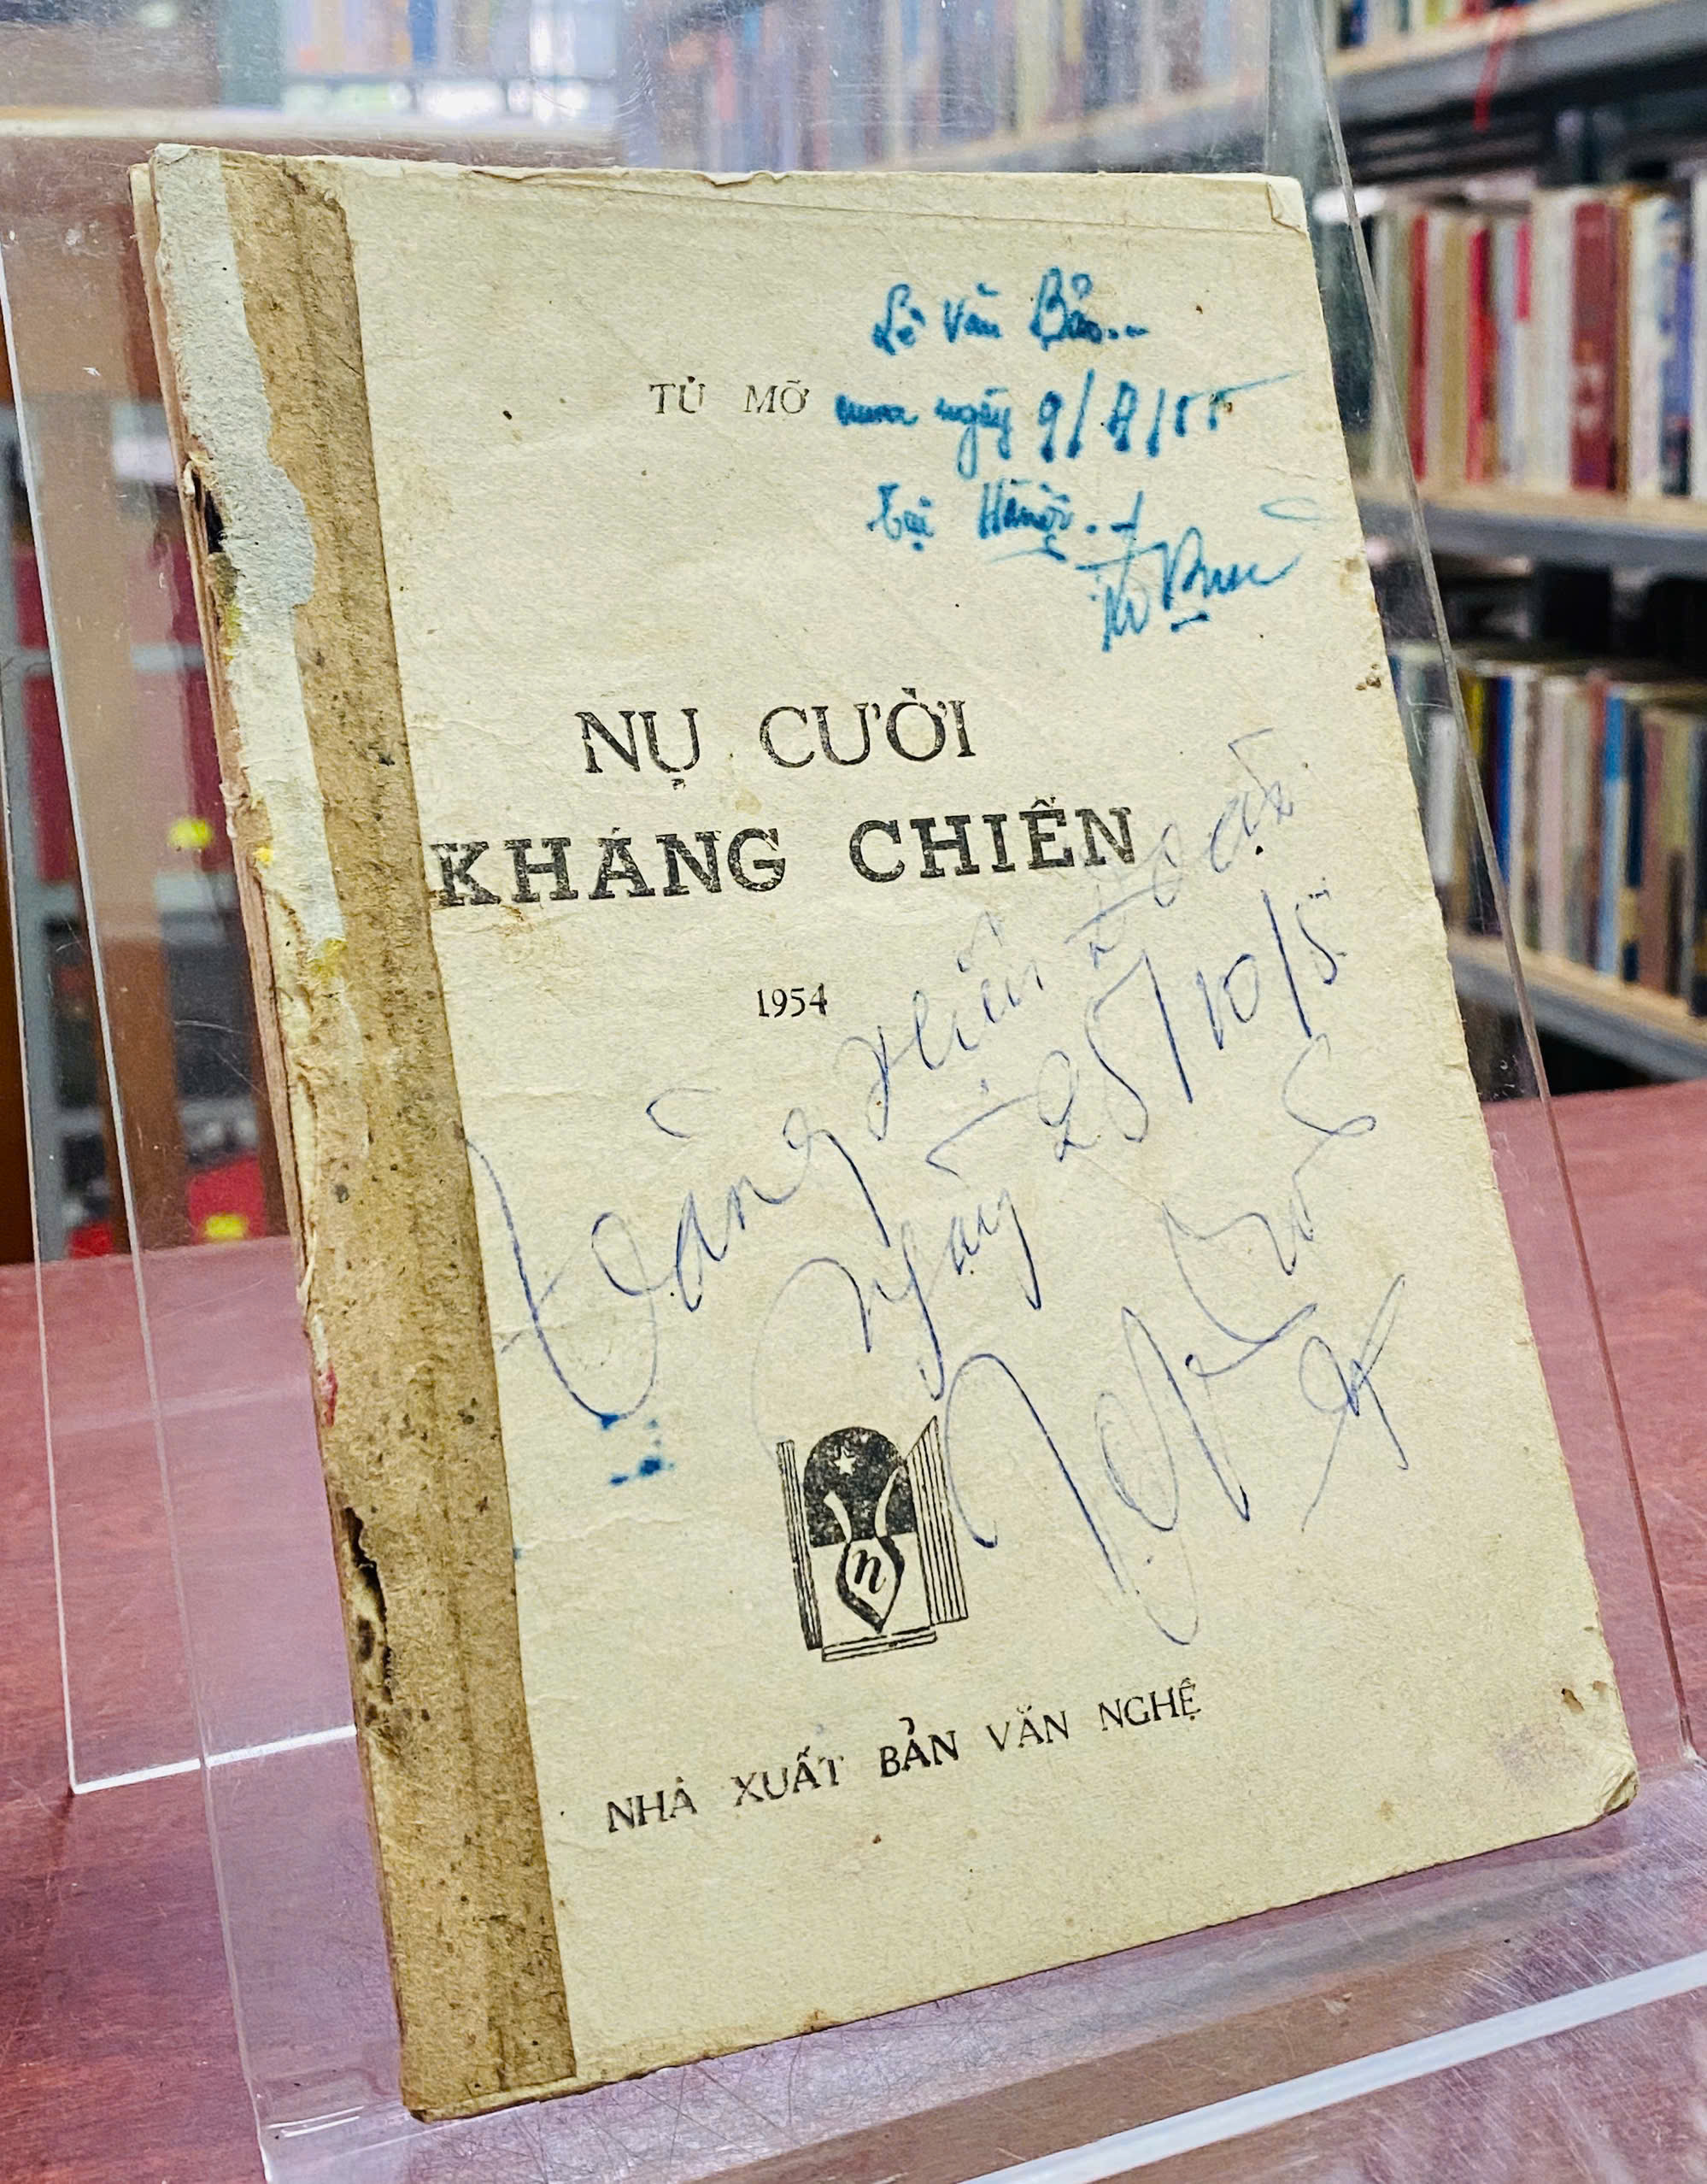 Lê Văn Bảo...
TÚ MỠ
mua ngày 9/8/55
tại Hànội.
NỤ CƯỜI
KHÁNG CHIẾN
1954
ngày 25/10/5
n
NHÀ XUẤT BẢN VĂN NGHỆ